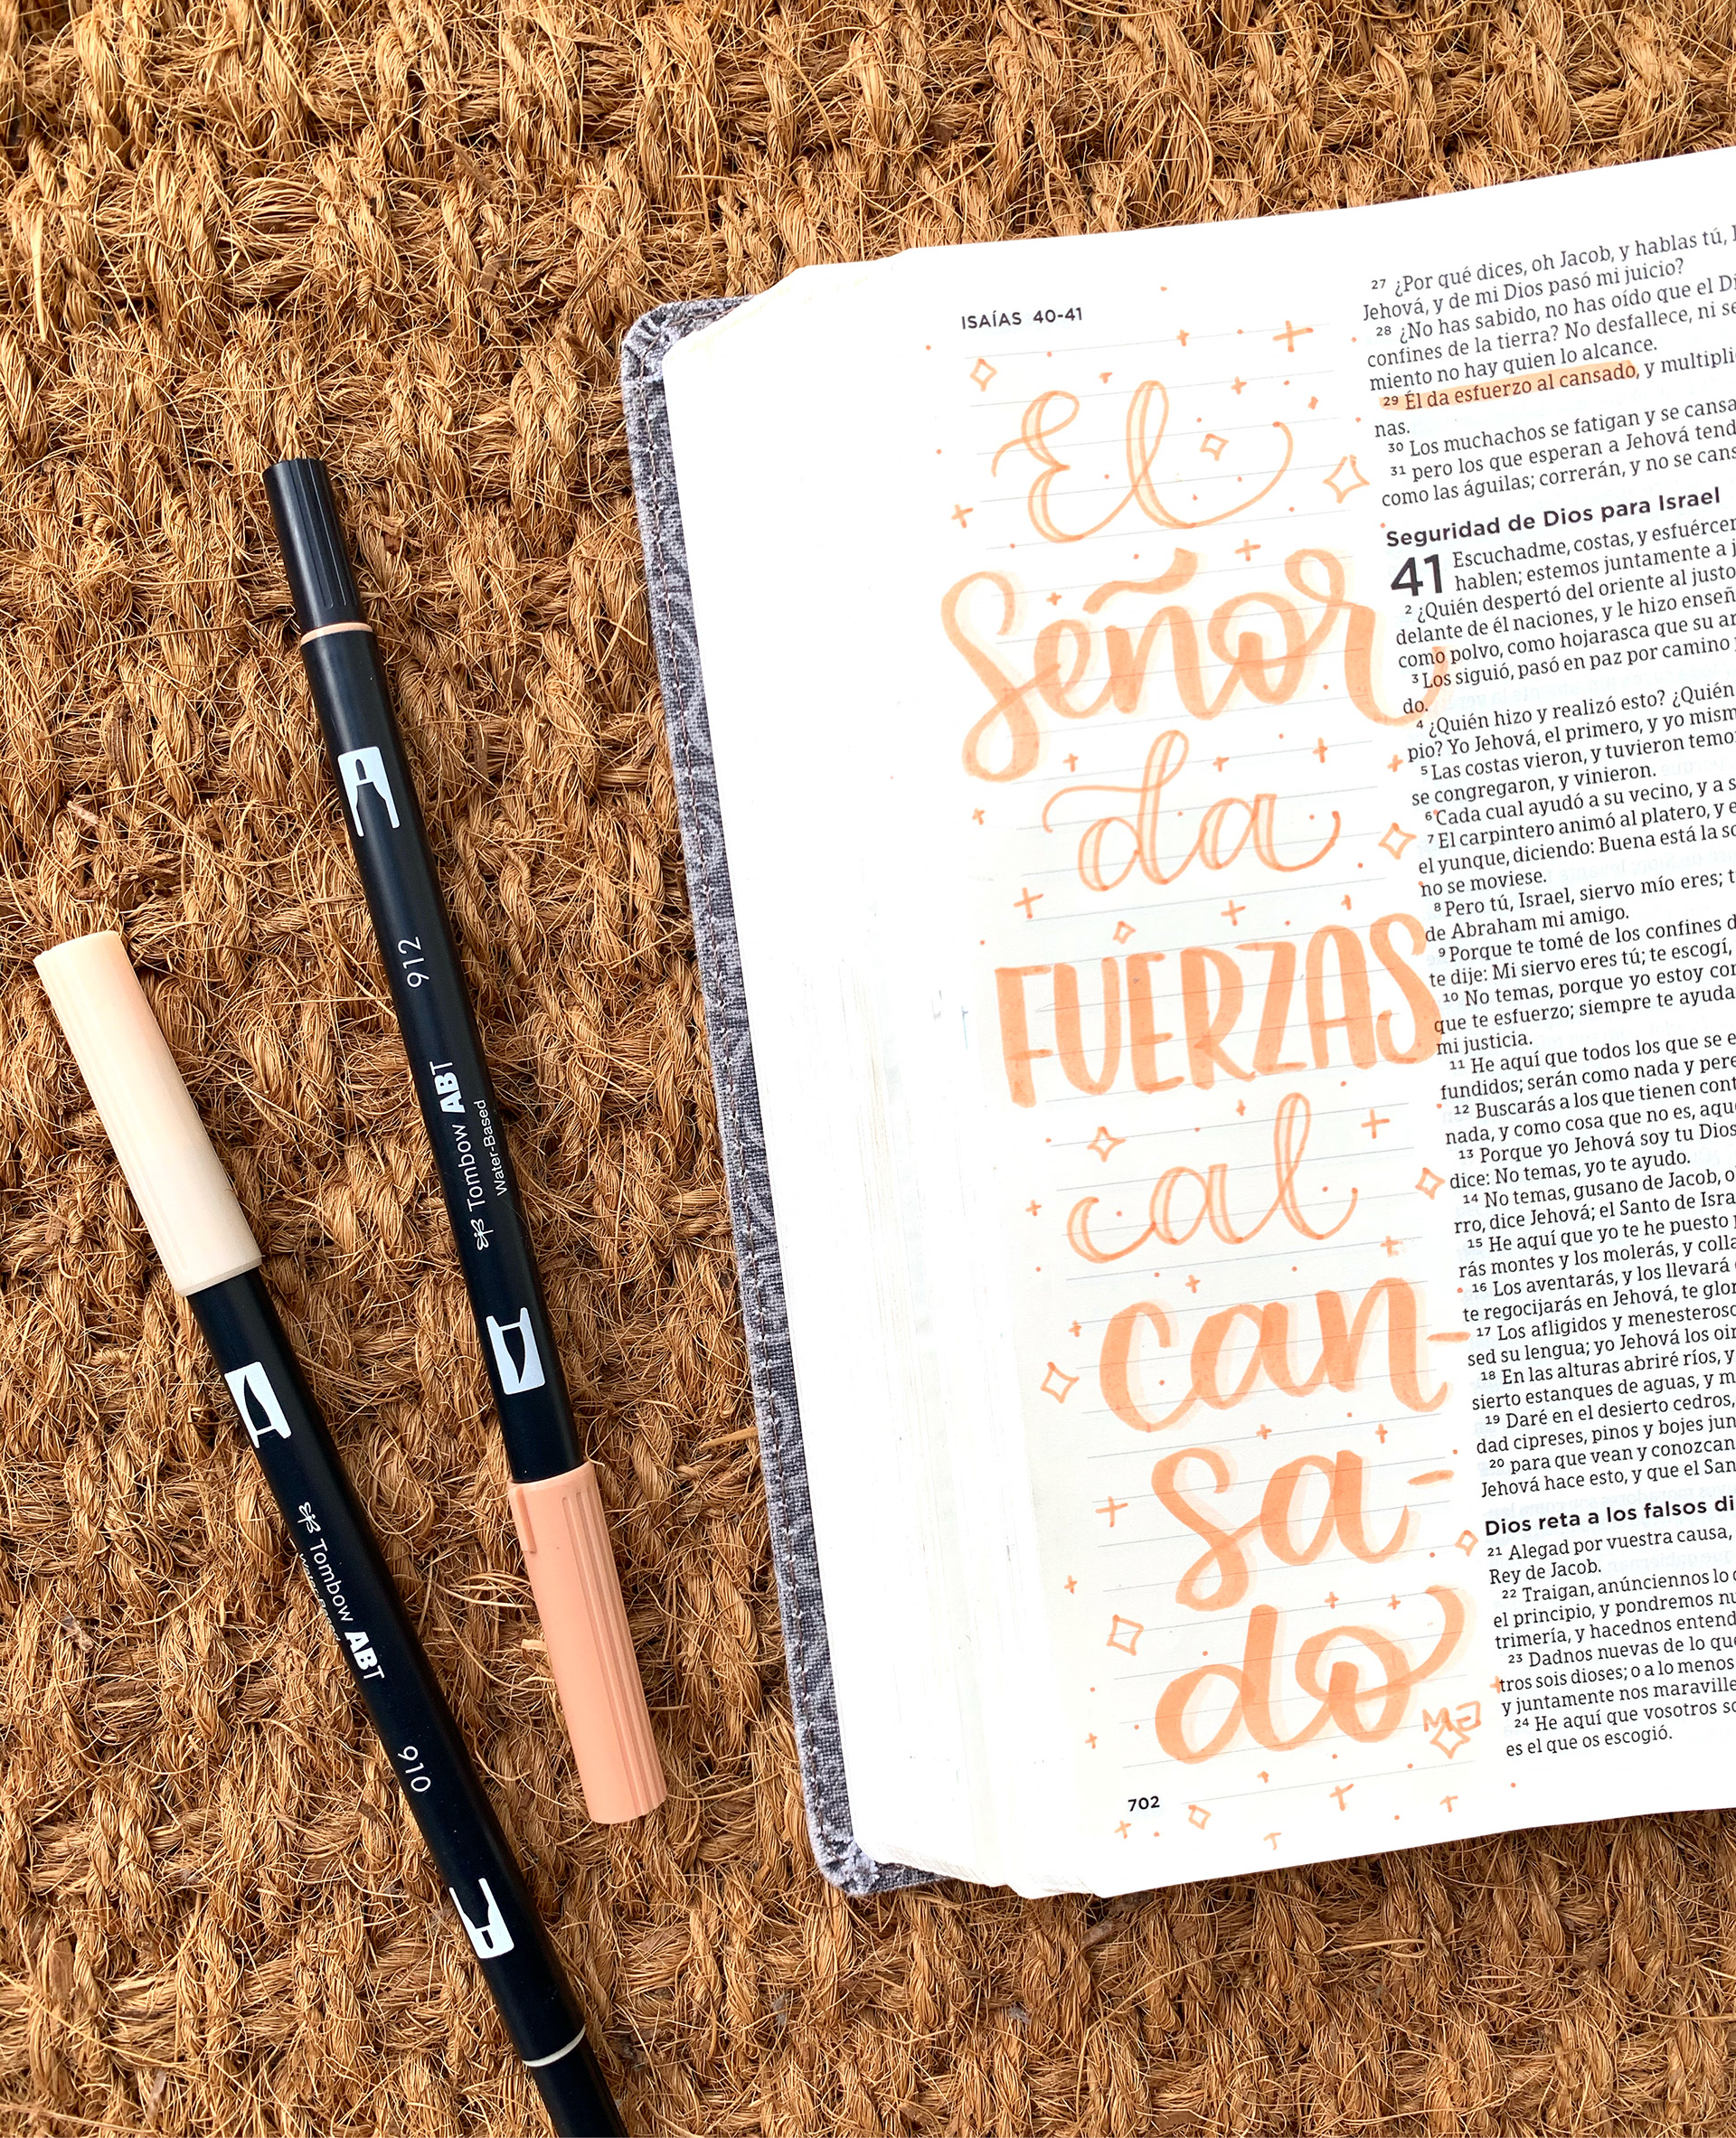 912
Tombow ABT
Water-Based
Tombow ABT
910
ISAÍAS 40-41
El
Señor
da
FUERZAS
al
can-
sa-
do
MG
702
27 ¿Por qué dices, oh Jacob, y hablas tú,
Jehová, y de mi Dios pasó mi juicio?
28 ¿No has sabido, no has oído que el
confines de la tierra? No desfallece, ni
miento no hay quien lo alcance.
29 Él da esfuerzo al cansado, y
nas.
30 Los muchachos se fatigan y se
31 pero los que esperan a Jehová
como las águilas; correrán, y no se
Seguridad de Dios para Israel
41 Escuchadme, costas, y
hablen; estemos juntamente a
2 ¿Quién despertó del oriente al justo
delante de él naciones, y le hizo
como polvo, como hojarasca que su
3 Los siguió, pasó en paz por camino
do.
4 ¿Quién hizo y realizó esto? ¿Quién
pio? Yo Jehová, el primero, y yo
5 Las costas vieron, y tuvieron
se congregaron, y vinieron.
6 Cada cual ayudó a su vecino, y a
7 El carpintero animó al platero, y
el yunque, diciendo: Buena está la
no se moviese.
8 Pero tú, Israel, siervo mío eres;
de Abraham mi amigo.
9 Porque te tomé de los confines
te dije: Mi siervo eres tú; te escogí,
10 No temas, porque yo estoy
que te esfuerzo; siempre te
mi justicia.
11 He aquí que todos los que se
fundidos; serán como nada y
12 Buscarás a los que tienen
nada, y como cosa que no es,
13 Porque yo Jehová soy tu Dios
dice: No temas, yo te ayudo.
14 No temas, gusano de Jacob,
rro, dice Jehová; el Santo de
15 He aquí que yo te he puesto
rás montes y los molerás, y
16 Los aventarás, y los llevará
te regocijarás en Jehová, te
17 Los afligidos y
sed su lengua; yo Jehová los
18 En las alturas abriré ríos, y
sierto estanques de aguas, y
19 Daré en el desierto cedros,
dad cipreses, pinos y bojes
20 para que vean y conozcan
Jehová hace esto, y que el
Dios reta a los falsos
21 Alegad por vuestra causa,
Rey de Jacob.
22 Traigan, anúnciennos lo
el principio, y pondremos
trimería, y hacednos
23 Dadnos nuevas de lo
tros sois dioses; o a lo menos
y juntamente nos
24 He aquí que vosotros
es el que os escogió.